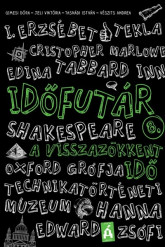 GIMESI DÓRA • JELI VIKTÓRIA • TASNÁDI ISTVÁN • VÉSZITS ANDREA
I. ERZSÉBET TEKLA
CHRISTOPHER MARLOWE
EDINA TABBARD INN
IDŐFUTÁR
SHAKESPEARE 8.
A VISSZAZÖKKENT
OXFORD GRÓFJA IDŐ
TECHNIKATÖRTÉNETI
MÚZEUM HANNA
EDWARD ZSÓFI